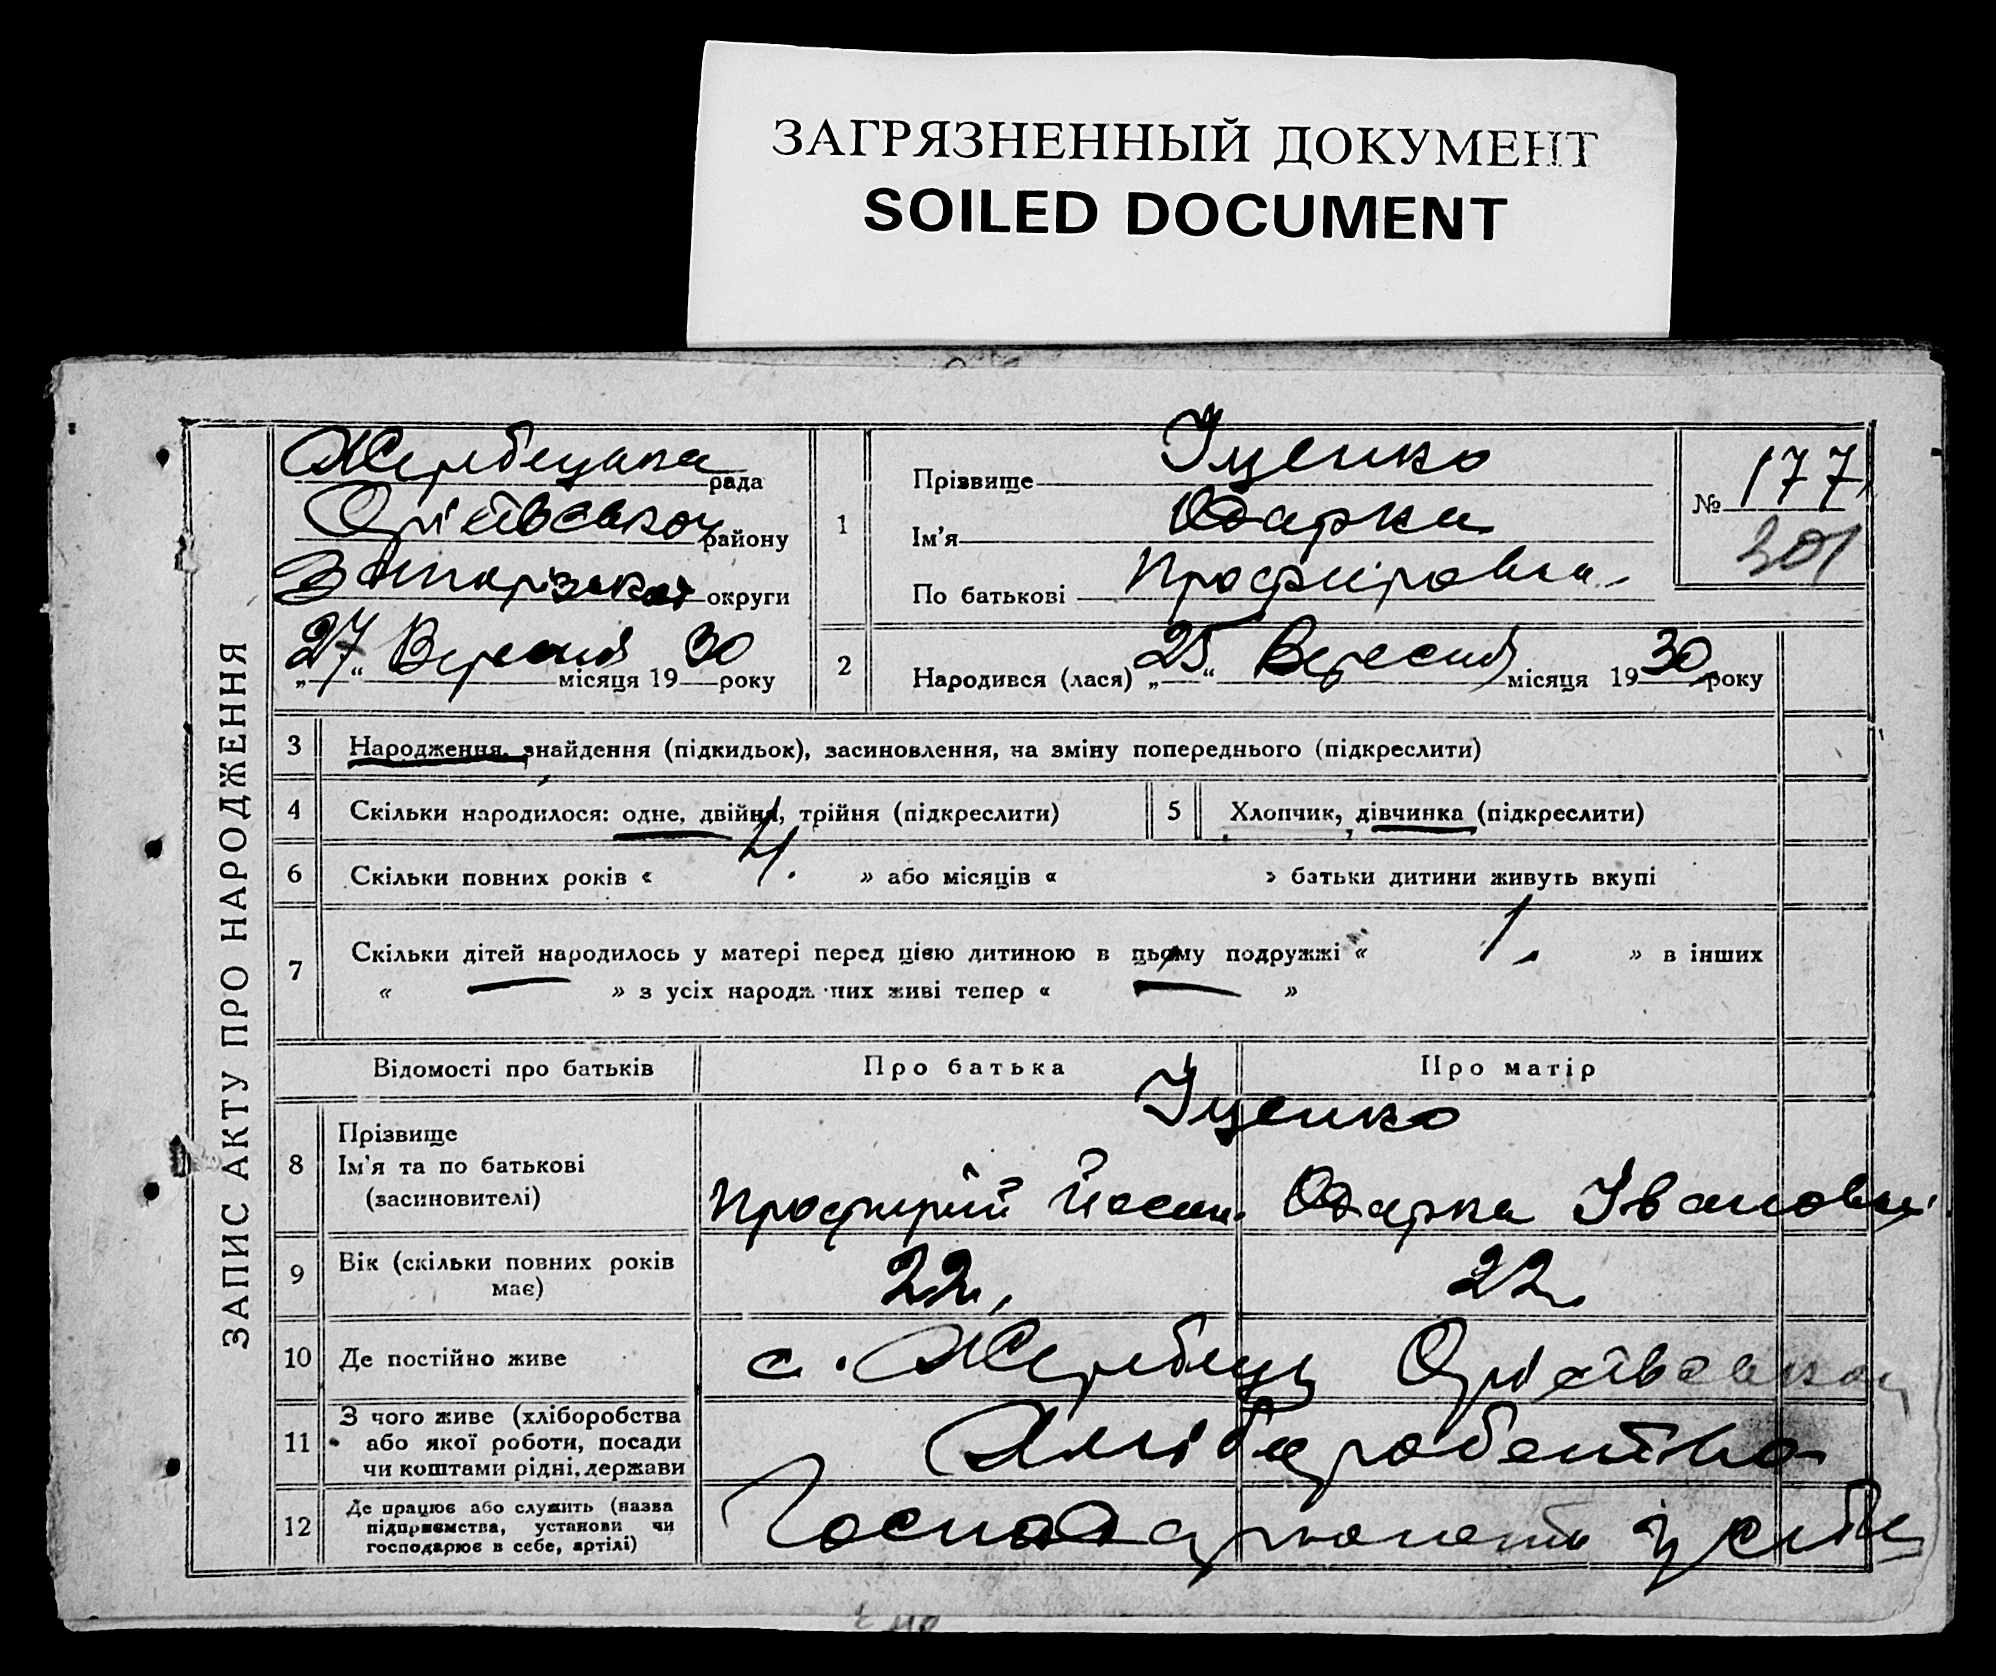 ЗАГРЯЗНЕННЫЙ ДОКУМЕНТ
SOILED DOCUMENT
ЗАПИС АКТУ ПРО НАРОДЖЕННЯ
Жеребецька рада
Оріхівського району
Запорізької округи
„27“ Вересня місяця 1930 року
1
Прізвище Іценко
Ім'я Одарка
По батькові Профирівна
№ 177
201
2
Народився (лася) „25“ Вересня місяця 1930 року
3 Народження, знайдення (підкидьок), засиновлення, на зміну попереднього (підкреслити)
4 Скільки народилося: одне, двійня, трійня (підкреслити)
5 Хлопчик, дівчинка (підкреслити)
6 Скільки повних років « 4. » або місяців « » батьки дитини живуть вкупі
7 Скільки дітей народилось у матері перед цією дитиною в цьому подружжі « 1. » в інших
« — » з усіх народжених живі тепер « — »
Відомості про батьків Про батька Про матір
8 Прізвище
Ім'я та по батькові
(засиновителі)
Іценко
Профирій Йосип. Одарка Івановна
9 Вік (скільки повних років
має)
22. 22.
10 Де постійно живе с. Жеребець Оріхівського
11 З чого живе (хліборобства
або якої роботи, посади
чи коштами рідні, держави
Хліборобство
12 Де працює або служить (назва
підприємства, установи чи
господарює в себе, артілі)
Господарюють у себе